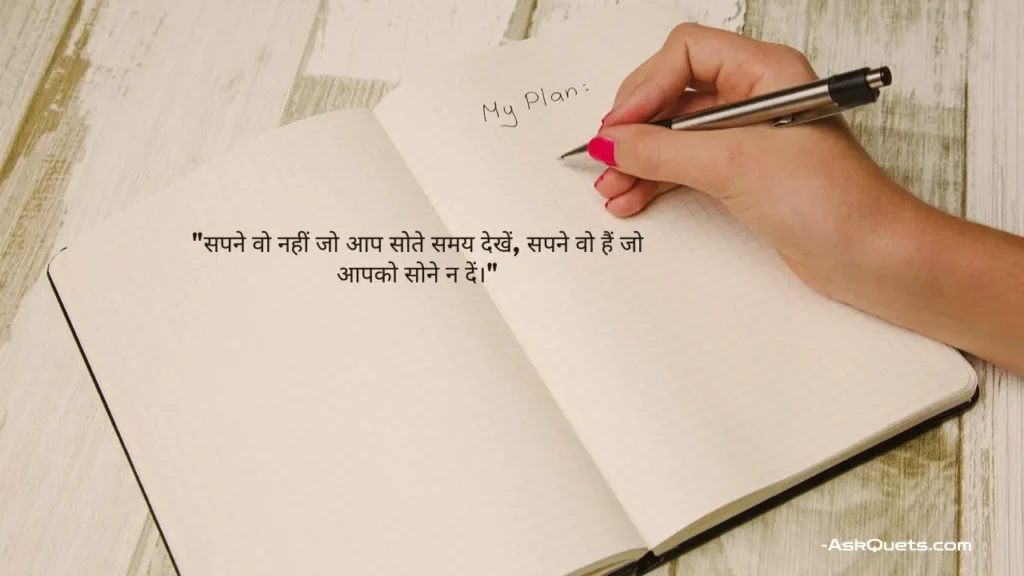 My Plan:
"सपने वो नहीं जो आप सोते समय देखें, सपने वो हैं जो
आपको सोने न दें।"
-AskQuets.com